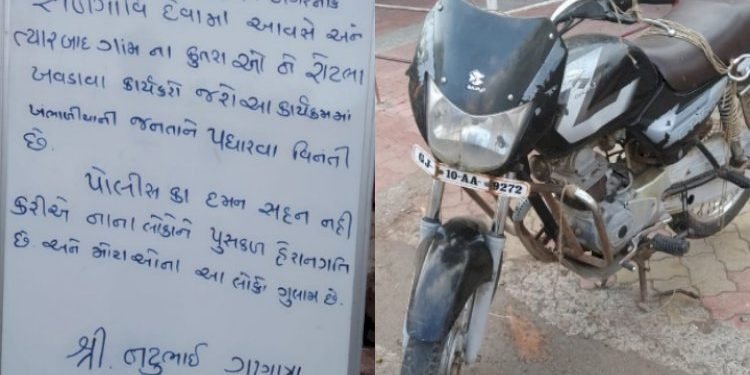 સળગાવિ દેવામાં આવસે અને
ત્યારબાદ ગામ ના કુતરા ઓ ને રોટલા
ખવડાવા કાર્યકરો જશે આ કાર્યક્રમમાં
ખંભાળીયાની જનતાને પધારવા વિનંતી
છે.
પોલીસ કા દમન સહન નહી
કરીએ નાના લોકોને પુસકળ હેરાનગતિ
છે. અને મોટાઓના આ લોકો ગુલામ છે.
શ્રી. નટુભાઈ
BAJAJ
GJ 10-AA- 9272